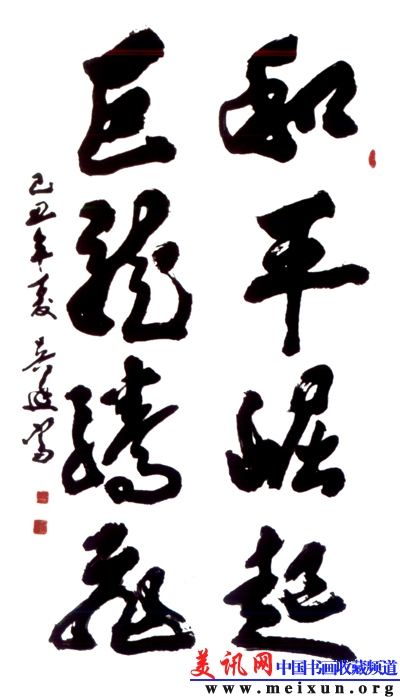 和平崛起
巨龙腾飞
己丑年夏
美讯网 中国书画收藏频道
www.meixun.org